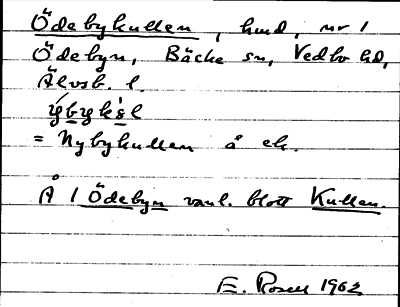 Ödebykullen, hmd, nr 1
Ödebyn, Bäcke sn, Vedbo hd,
Älvsb. l.
= Nybykullen å ek.
Å 1 Ödebyn vanl. blott Kullen.
E. Rosell 1962